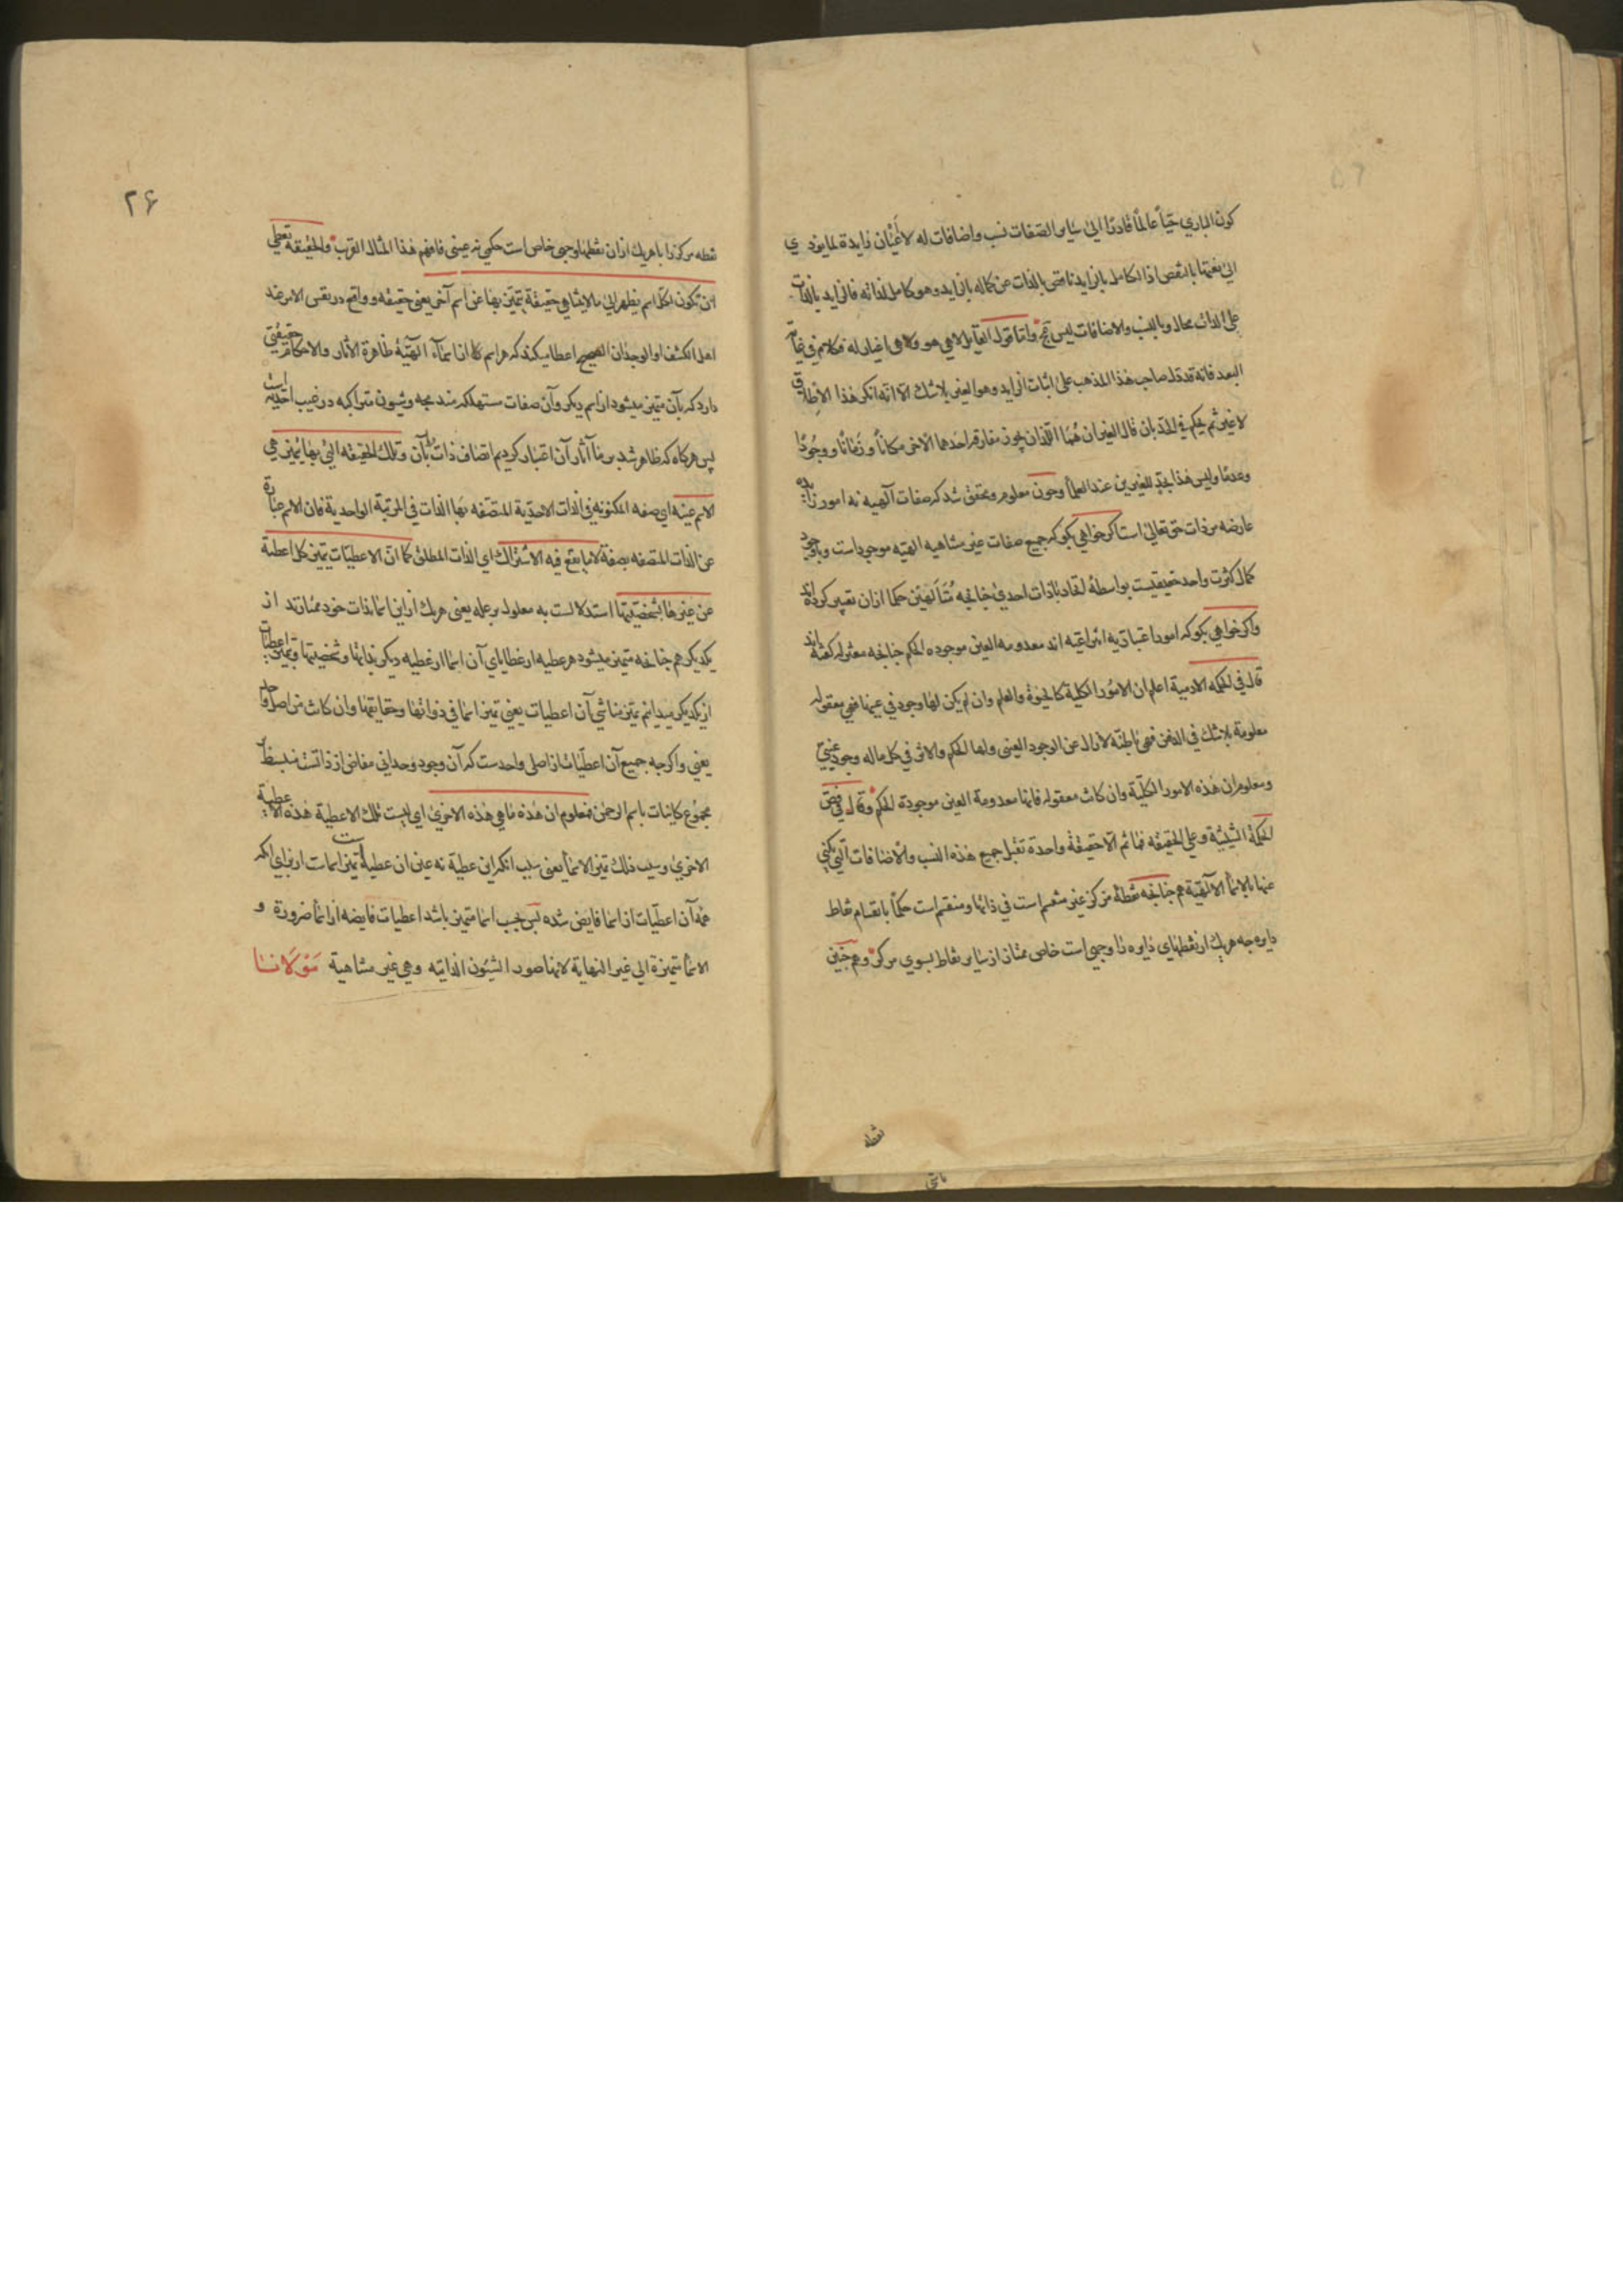 كون الباري حيّاً عالماً قادرًا الى ساير الصفات نسب واضافات له لا أعيان زايدة لما يؤدي
الى نعتها بالنقص اذ الكامل بالزايد ناقص بالذات عن كماله بالزايد وهو كامل لذاته فالزايد بالذات
على الذات محال وبالنسب والاضافات ليس بمحال واما قول القايل لا هي هو ولا هي اغيار له فكلام في غاية
البعد فانه قد دل صاحب هذا المذهب على اثبات الزايد وهو الغير بلا شك الا انه انكر هذا الاطلاق
لا غير ثم تحكم في الحد بان قال الغيران هُمَا اللذان يجوز مفارقة احدهما الاخر مكاناً وزمانًا ووجُودًا
وعدمًا وليس هذا بحد للغيرين عند العلما وچون معلوم ومحقق شد كه صفات الهيه نه امور زايده
عارضه بر ذات حق تعالى است اگر خواهي بگو كه جميع صفات غير متناهيه الهيّه موجود است وباوجود
كمال كثرت واحد حقيقيست بواسطه اتحاد با ذات احدي چنانچه متألهين حكما ازان تعبير كرده اند
واگر خواهي بگو كه امور اعتباريه انتزاعيه اند معدومه العين موجوده الحكم چنانچه معتزله گفته اند
قال في الحكمه الادمية اعلم ان الامور الكلية كالحيوة والعلم وان لم يكن لها وجود في عينها فهي معقوله
معلومة بلا شك في الذهن فهي باطنة لا تزال عن الوجود العيني ولها الحكم والاثر في كل ماله وجود عيني
ومعلوم ان هذه الامور الكلّية وان كانت معقوله فانها معدومة العين موجودة الحكم وقال في فص
الحكمة الشيثيّة وعلى الحقيقه فما ثم الا حقيقةٌ واحدة تقبل جميع هذه النسب والاضافات التي يكنى
عنها بالاسماء الالهيّة هم چنانچه نقطهٔ مركز غير منقسم است في ذاتها ومنقسم است حكماً بانقسام نقاط
دايره چه هريك از نقطهاي دايره را وجهي است خاص ممتاز از ساير نقاط بسوي مركز وهم چنين
نقطه
٢۶
نقطه مركز را با هريك ازان نقطها وجهي خاص است حكمي نه عيني فافهم هذا المثال القرب والحقيقه تعطي
ان تكون لكل اسم يظهر الى ما لا يتناهي حقيقة يتميّز بها عن اسم آخر يعني حقيقه وواقع در نفس الامر نزد
اهل الكشف او الوجدان الصحيح اعطا ميكند كه هر اسم كه از اسماء الٓهيّهٔ ظاهرة الآثار والاحكام حقيقتي
دارد كه بآن متميز ميشود از اسم ديگر وآن صفات مستهلكه مندمجه وشيون متراكبه در غيب احديت است
پس هرگاه كه ظاهر شد بر ما آثار آن اعتبار كرديم اتصاف ذات بآن وتلك الحقيقه التي بها يتميز هي
الاسم عينه اي صفه المكنونة في الذات الاحدّية المتصّفه بها الذات في المرتبة الواحدية فان الاسم عبارة
عن الذات المتصفه بصفة لا ما يقع فيه الاشتراك اي الذات المطلق كما انّ الاعطيّات يتميز كل اعطية
عن غيرها بشخصيّتها استدلالست به معلول بر عله يعني هريك از اين اسما بذات خود ممتازند از
يكديگر هم چنانچه متميز ميشود هر عطيه از عطاياي آن اسما از عطيه ديگر بذاتها وشخصيتها وتميز اعطيات
از يكديگر ميدانم تميز مناشي آن اعطيات يعني تميز اسما في ذواتها وحقايقها وان كانت من اصل واحد
يعني واگرچه جميع آن اعطيّات از اصلي واحدست كه آن وجود وحداني مفاض از ذاتست منبسط بر
مجموع كاينات باسم الرحمن فمعلوم ان هذه ما هي هذه الاخرى اي ليست تلك الاعطية هذه الاعطية
الاخرى وسبب ذلك تميز الاسماء يعني سبب انكه اين عطية نه عين ان عطية است تميز اسمات از براي انكه
همه آن اعطيّات از اسما فايض شده پس بحسب اسما متميز باشد اعطيات فايضه از اسما ضرورة و
الاسما متميزة الى غير النهاية لانها صور الشيئون الذاتيه وهي غير متناهية مَوْلَانَا